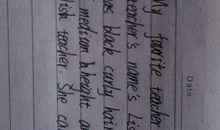 Date.
My favorite teacher
teacher's name's Li
as black curly hair
medium height a
lish teacher. She ca